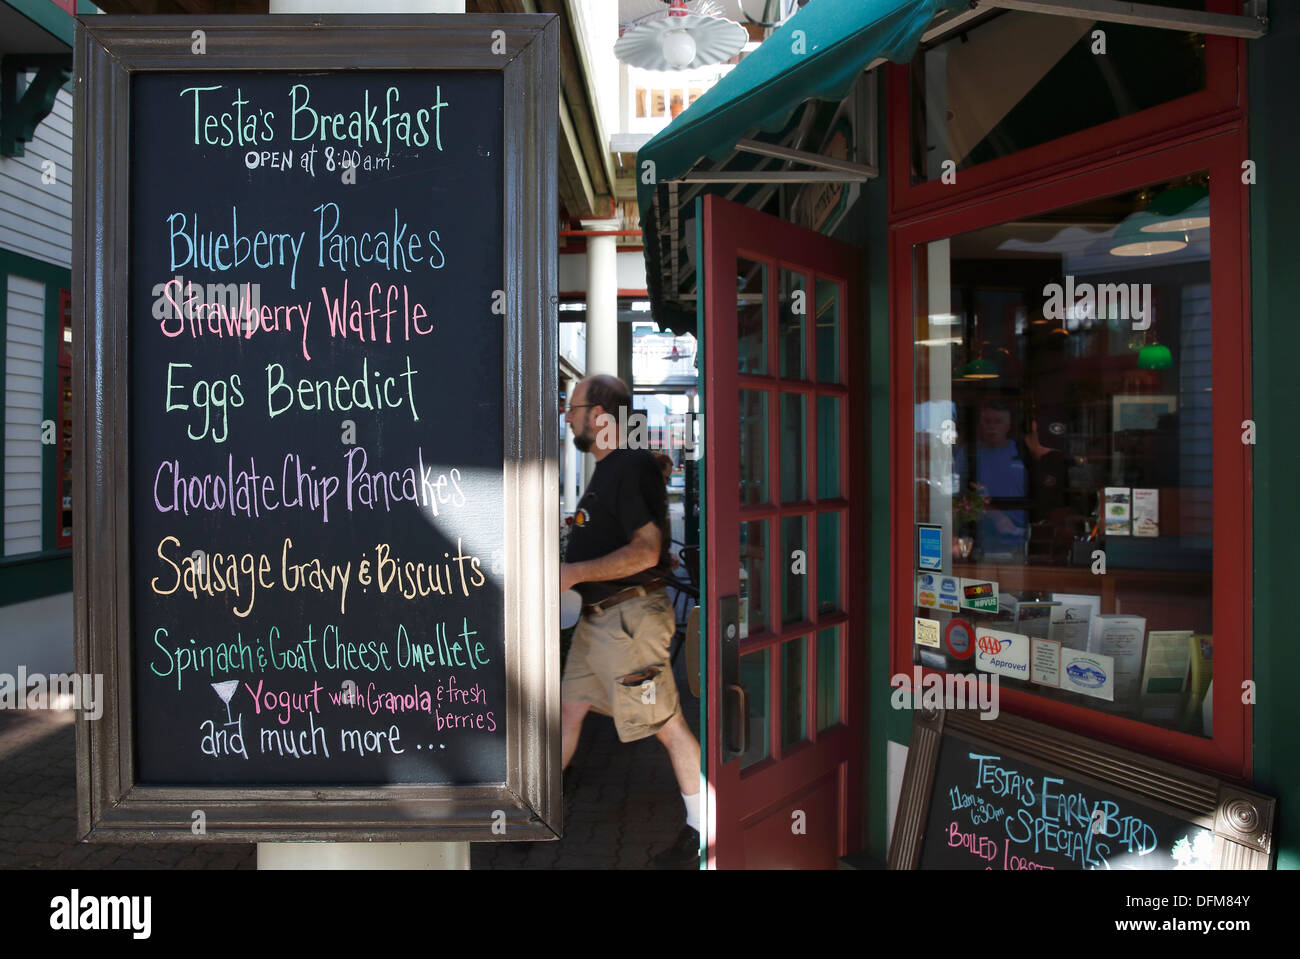 Testa's Breakfast
OPEN at 8:00 a.m.
Blueberry Pancakes
Strawberry Waffle
Eggs Benedict
Chocolate Chip Pancakes
Sausage Gravy & Biscuits
Spinach & Goat Cheese Omellete
Yogurt with Granola & fresh berries
and much more ...
AAA
Approved
DISCOVER
NOVUS
TESTA'S EARLY BIRD
11am to 6:30pm
SPECIALS
BOILED LOBST
alamy
Image ID: DFM84Y
www.alamy.com